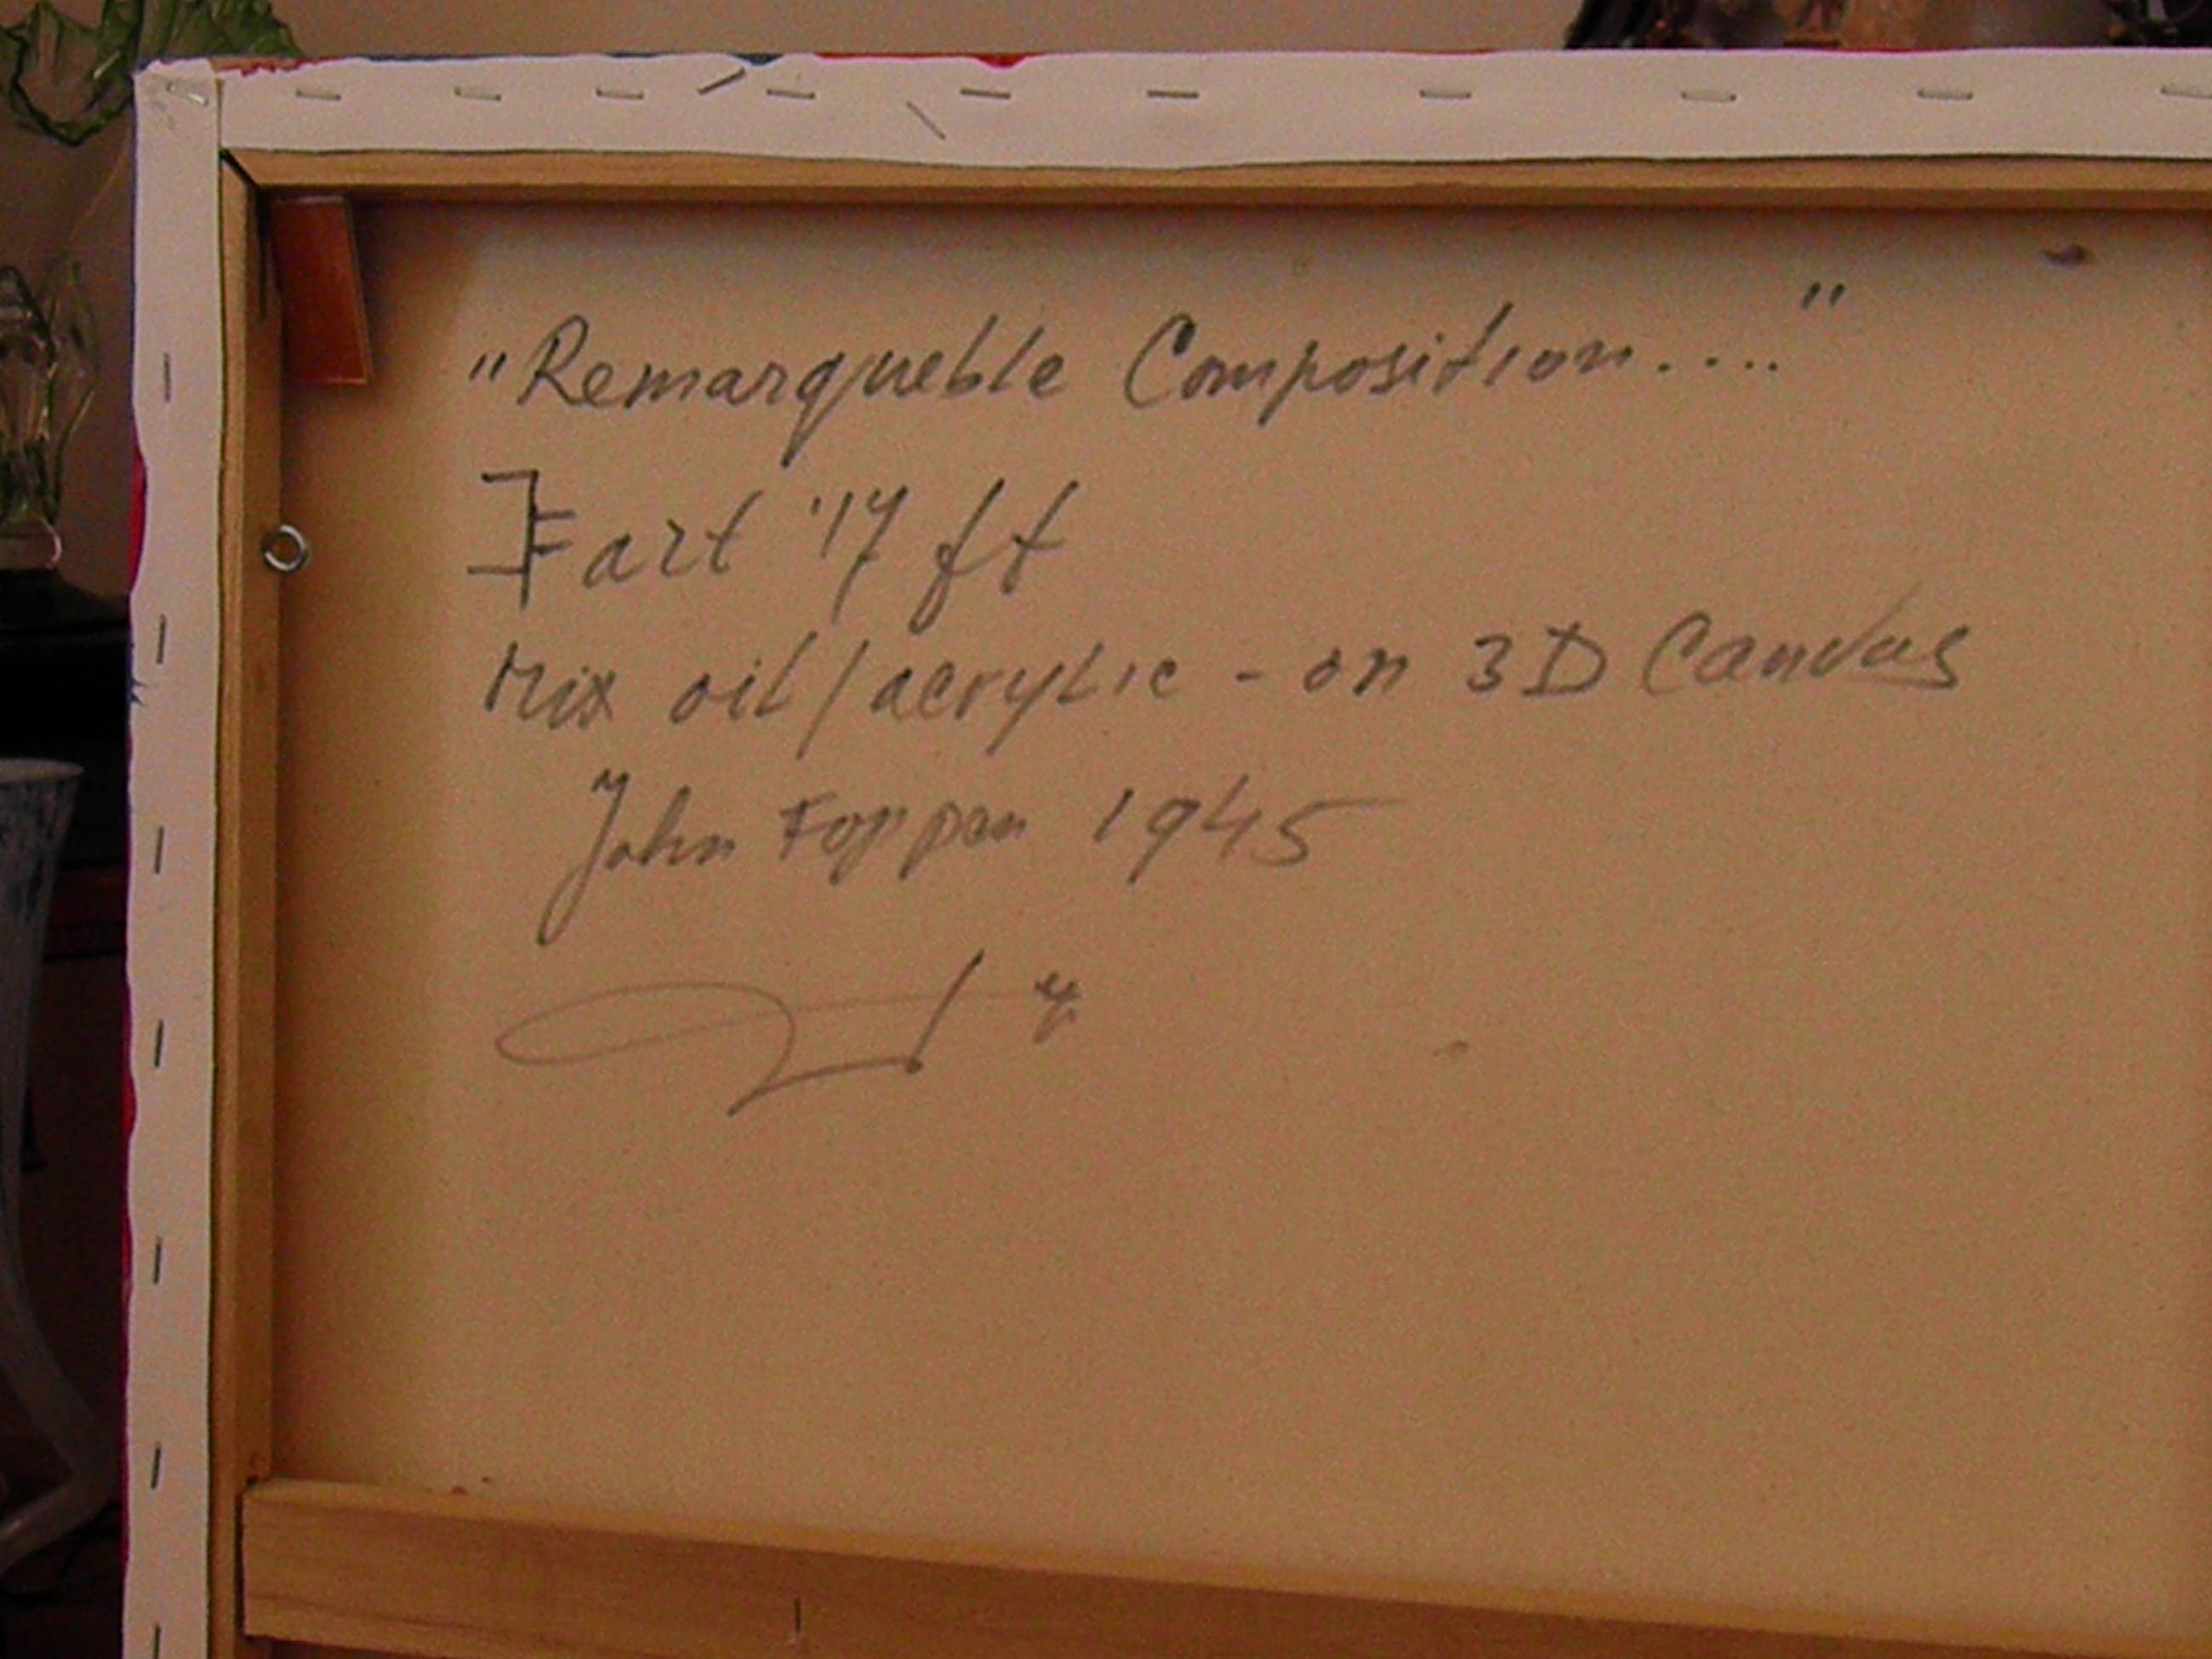 "Remarqueble Composition...."
Fart '17 ft
Mix oil/acrylic - on 3D Canvas
John Foppen 1945